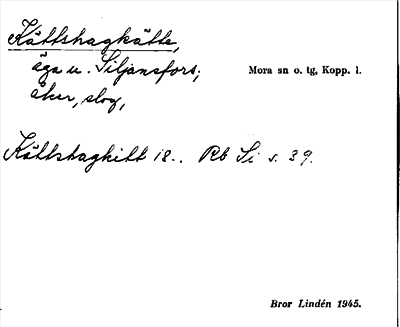 Kättshagkätte,
äga u. Siljansfors;
Mora sn o. tg, Kopp. l.
åker, slog,
Kättshagkitt 18.. Rb Si s. 39.
Bror Lindén 1945.